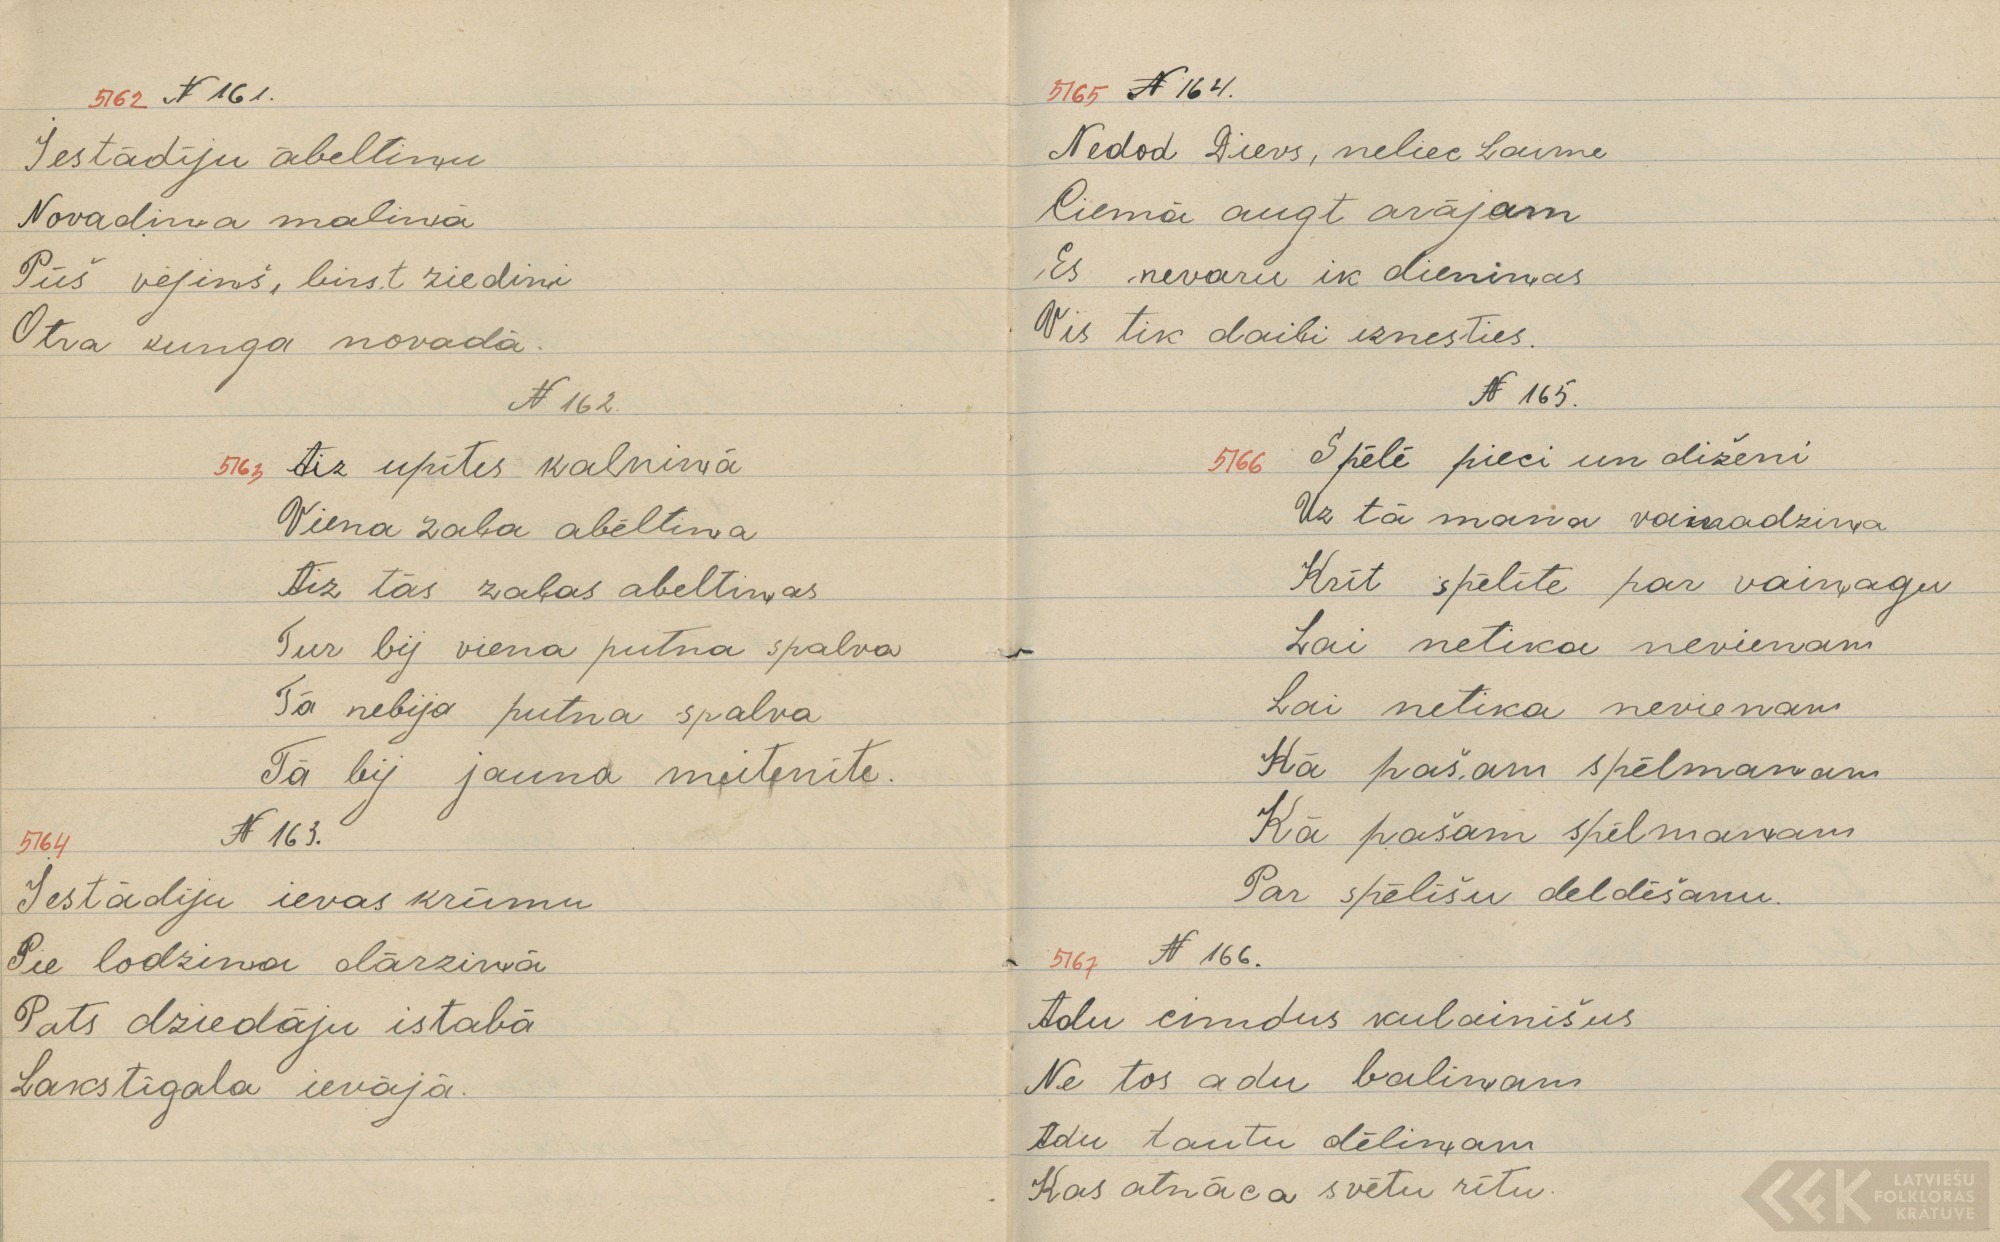 5162 № 161.
Iestādīju ābeltiņu
Novadiņa maliņā
Pūš vējiņš, birst ziediņi
Otra kunga novadā.
№ 162.
5163 Aiz upītes kalniņā
Viena zaļa abēltiņa
Aiz tās zaļas abeltiņas
Tur bij viena putna spalva
Tā nebija putna spalva
Tā bij jauna meitenīte.
5164 № 163.
Iestādīju ievas krūmu
Pie lodziņa dārziņā
Pats dziedāju istabā
Lakstīgala ievājā.
5165 № 164.
Nedod Dievs, neliec Laime
Ciemā augt arājam
Es nevaru ik dieniņas
Vis tik daiļi iznesties.
№ 165.
5166 Spēlē pieci un diženi
Uz tā mana vaiņadziņa
Krīt spēlīte par vaiņagu
Lai netika nevienam
Lai netika nevienam
Kā pašam spēlmaņam
Kā pašam spēlmaņam
Par spēlīšu deldēšanu.
5167 № 166.
Adu cimdus kulainišus
Ne tos adu baliņam
Adu tautu dēliņam
Kas atnāca svētu rītu.
LATVIEŠU
FOLKLORAS
KRĀTUVE